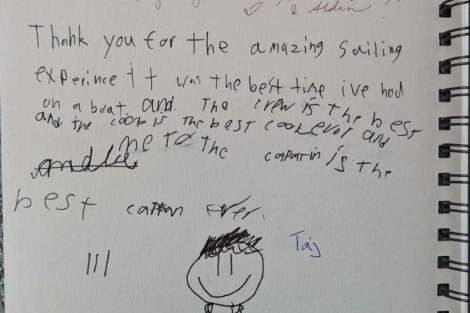 & Aldin
Thank you for the amazing sailing
experince it was the best time ive had
on a boat and The crew is the best
and the cook is the best cook ever and
me to the capatin is the
best captan ever.
Taj